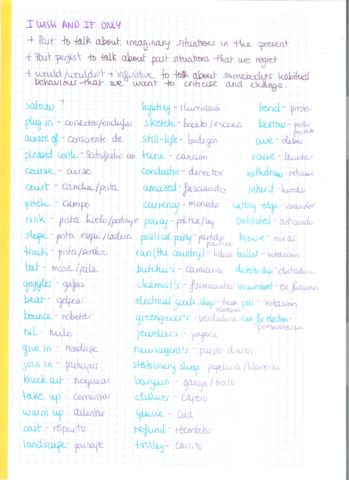 I WISH AND IF ONLY
+ Past to talk about imaginary situations in the present
+ Past perfect to talk about past situations that we regret
+ would/wouldn't + infinitive to talk about somebody's habitual
behaviour that we want to criticise and change.
?
plug in - conectar/enchufar
aware of - consciente de
pleased with - satisfecho
course - curso
court - cancha/pista
pitch - campo
rink - pista hielo/patinaje
slope - pista esquí/ladera
track - pista/sendero
bat - pala
goggles - gafas
beat - golpear
bounce - rebotar
nil - nulo
give in - rendirse
join in - participar
knock out - noquear
take up - comenzar
warm up - calentar
cast - reparto
landscape - paisaje
lighting - iluminación
sketch - boceto/escena
still-life - bodegón
tune - canción
conductor - director
amazed - fascinado
currency - moneda
policy - política/ley
political party - partido político
run (the country) - liderar
butcher's - carnicería
chemist's - farmacéutico
electrical goods shop
greengrocer's - verdulería
jeweller's - joyería
newsagent's - puesto diarios
stationery shop - papelería/librería
bargain - ganga/trato
cashier - cajero
queue - cola
refund - reembolso
trolley - carrito
lend - prestar
borrow - pedir prestado
owe - deber
withdraw - retirarse
inherit - heredar
cutting-edge
outdated - anticuado
browse - mirar
ballot - votación
dictatorship - dictadura
incumbent - en funciones
votación
run for election - presentarse